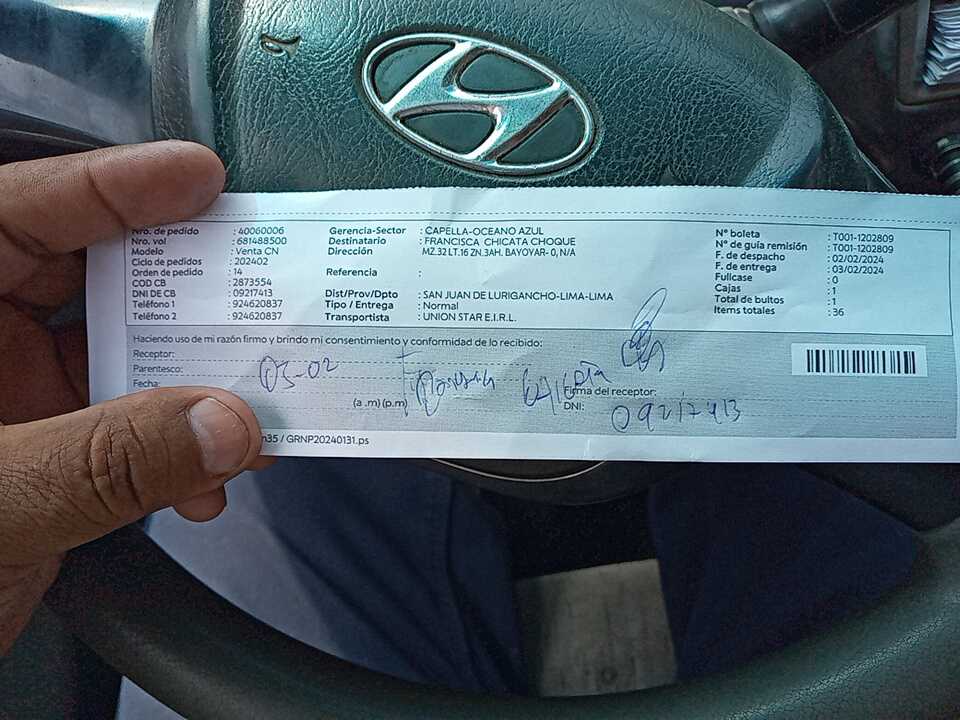 Nro. de pedido : 40060006
Nro. vol : 681488500
Modelo : Venta CN
Ciclo de pedidos : 202402
Orden de pedido : 14
COD CB : 2873554
DNI DE CB : 09217413
Teléfono 1 : 924620837
Teléfono 2 : 924620837
Gerencia-Sector : CAPELLA-OCEANO AZUL
Destinatario : FRANCISCA CHICATA CHOQUE
Dirección MZ.32 LT.16 ZN.3AH. BAYOVAR- 0, N/A
Referencia :
Dist/Prov/Dpto : SAN JUAN DE LURIGANCHO-LIMA-LIMA
Tipo / Entrega : Normal
Transportista : UNION STAR E.I.R.L.
N° boleta : T001-1202809
N° de guía remisión : T001-1202809
F. de despacho : 02/02/2024
F. de entrega : 03/02/2024
Fullcase : 0
Cajas : 1
Total de bultos : 1
Items totales : 36
Haciendo uso de mi razón firmo y brindo mi consentimiento y conformidad de lo recibido:
Receptor:
Parentesco:
Fecha: 03-02
(a .m) (p.m)
Firma del receptor:
DNI: 09217413
n35 / GRNP20240131.ps